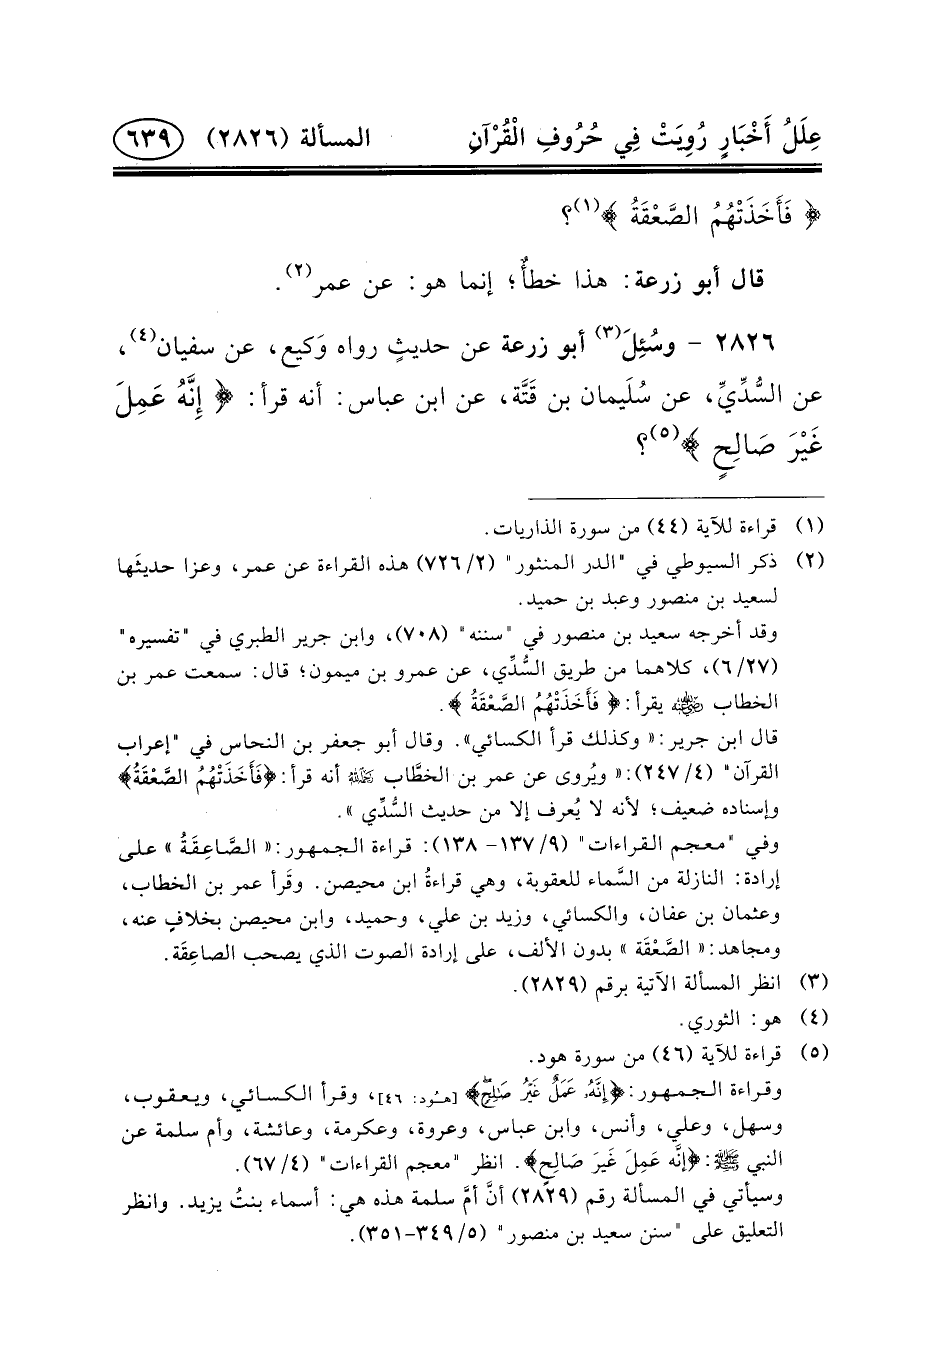 عِلَلُ أَخْبَارٍ رُوِيَتْ فِي حُرُوفِ الْقُرْآنِ المسألة (٢٨٢٦) ٦٣٩
﴿ فَأَخَذَتْهُمُ الصَّعْقَةُ ﴾(١)؟
قال أبو زرعة: هذا خطأٌ؛ إنما هو: عن عمر(٢).
٢٨٢٦ - وسُئِلَ(٣) أبو زرعة عن حديثٍ رواه وَكيع، عن سفيان(٤)،
عن السُّدِّيِّ، عن سُلَيمان بن قَتَّة، عن ابن عباس: أنه قرأ: ﴿ إِنَّهُ عَمِلَ
غَيْرَ صَالِحٍ ﴾(٥)؟
(١) قراءة للآية (٤٤) من سورة الذاريات.
(٢) ذكر السيوطي في "الدر المنثور" (٧٢٦/٢) هذه القراءة عن عمر، وعزا حديثَها
لسعيد بن منصور وعبد بن حميد.
وقد أخرجه سعيد بن منصور في "سننه" (٧٠٨)، وابن جرير الطبري في "تفسيره"
(٦/٢٧)، كلاهما من طريق السُّدِّي، عن عمرو بن ميمون؛ قال: سمعت عمر بن
الخطاب ﵁ يقرأ: ﴿ فَأَخَذَتْهُمُ الصَّعْقَةُ ﴾.
قال ابن جرير: « وكذلك قرأ الكسائي». وقال أبو جعفر بن النحاس في "إعراب
القرآن" (٢٤٧/٤): « ويُروى عن عمر بن الخطَّاب ﵀ أنه قرأ: ﴿فَأَخَذَتْهُمُ الصَّعْقَةُ﴾
وإسناده ضعيف؛ لأنه لا يُعرف إلا من حديث السُّدِّي ».
وفي "معجم القراءات" (١٣٧/٩- ١٣٨): قراءة الجمهور: « الصَّاعِقَةُ » على
إرادة: النازلة من السَّماء للعقوبة، وهي قراءةُ ابن محيصن. وقَرأ عمر بن الخطاب،
وعثمان بن عفان، والكسائي، وزيد بن علي، وحميد، وابن محيصن بخلافٍ عنه،
ومجاهد: « الصَّعْقَة » بدون الألف، على إرادة الصوت الذي يصحب الصاعِقَة.
(٣) انظر المسألة الآتية برقم (٢٨٢٩).
(٤) هو: الثوري.
(٥) قراءة للآية (٤٦) من سورة هود.
وقراءة الجمهور: ﴿إِنَّهُۥ عَمَلٌ غَيْرُ صَٰلِحٍۖ﴾ [هُود: ٤٦]، وقرأ الكسائي، ويعقوب،
وسهل، وعلي، وأنس، وابن عباس، وعروة، وعكرمة، وعائشة، وأم سلمة عن
النبي ﷺ: ﴿إنَّه عَمِلَ غَيرَ صَالِحٍ﴾. انظر "معجم القراءات" (٦٧/٤).
وسيأتي في المسألة رقم (٢٨٢٩) أنَّ أمَّ سلمة هذه هي: أسماء بنتُ يزيد. وانظر
التعليق على "سنن سعيد بن منصور" (٣٤٩/٥-٣٥١).